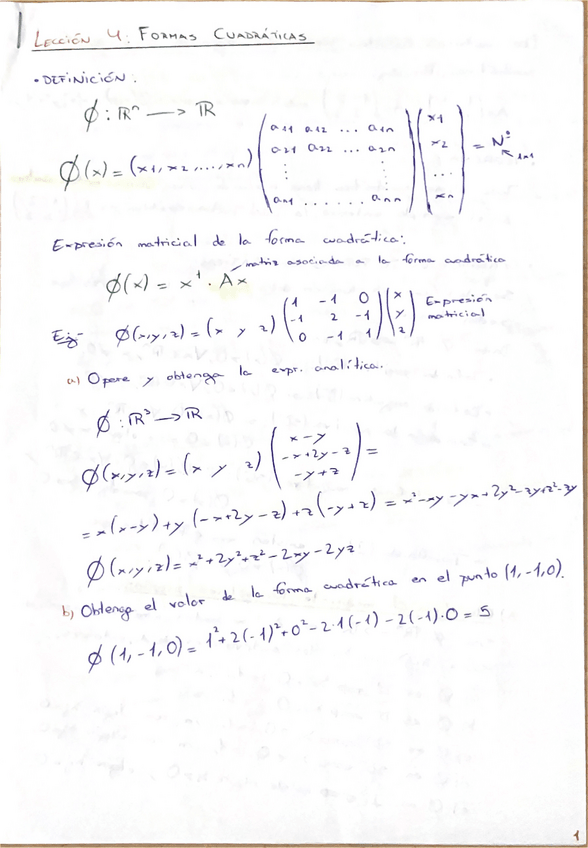 LECCIÓN 4: FORMAS CUADRÁTICAS
• DEFINICIÓN:
ϕ : ℝⁿ ⟶ ℝ
ϕ(x) = (x1, x2, ..., xn) ( a11 a12 ... a1n ) ( x1 )
( a21 a22 ... a2n ) ( x2 ) = Nº
( ⋮ ⋮ ) ( ... ) ↖ 1x1
( an1 . . . . . . ann ) ( xn )
Expresión matricial de la forma cuadrática:
matriz asociada a la forma cuadrática
ϕ(x) = xᵗ · Ax
Ej:- ϕ(x,y,z) = (x y z) ( 1 -1 0 ) ( x ) Expresión
( -1 2 -1 ) ( y ) matricial
( 0 -1 1 ) ( z )
a) Opere y obtenga la expr. analítica.
ϕ : ℝ³ ⟶ ℝ
ϕ(x,y,z) = (x y z) ( x-y )
( -x+2y-z ) =
( -y+z )
= x(x-y) + y(-x+2y-z) + z(-y+z) = x²-xy-yx+2y²-zy+z²-zy
ϕ(x,y,z) = x²+2y²+z²-2xy-2yz
b) Obtenga el valor de la forma cuadrática en el punto (1,-1,0).
ϕ(1,-1,0) = 1²+2(-1)²+0²-2·1(-1)-2(-1)·0 = 5
1